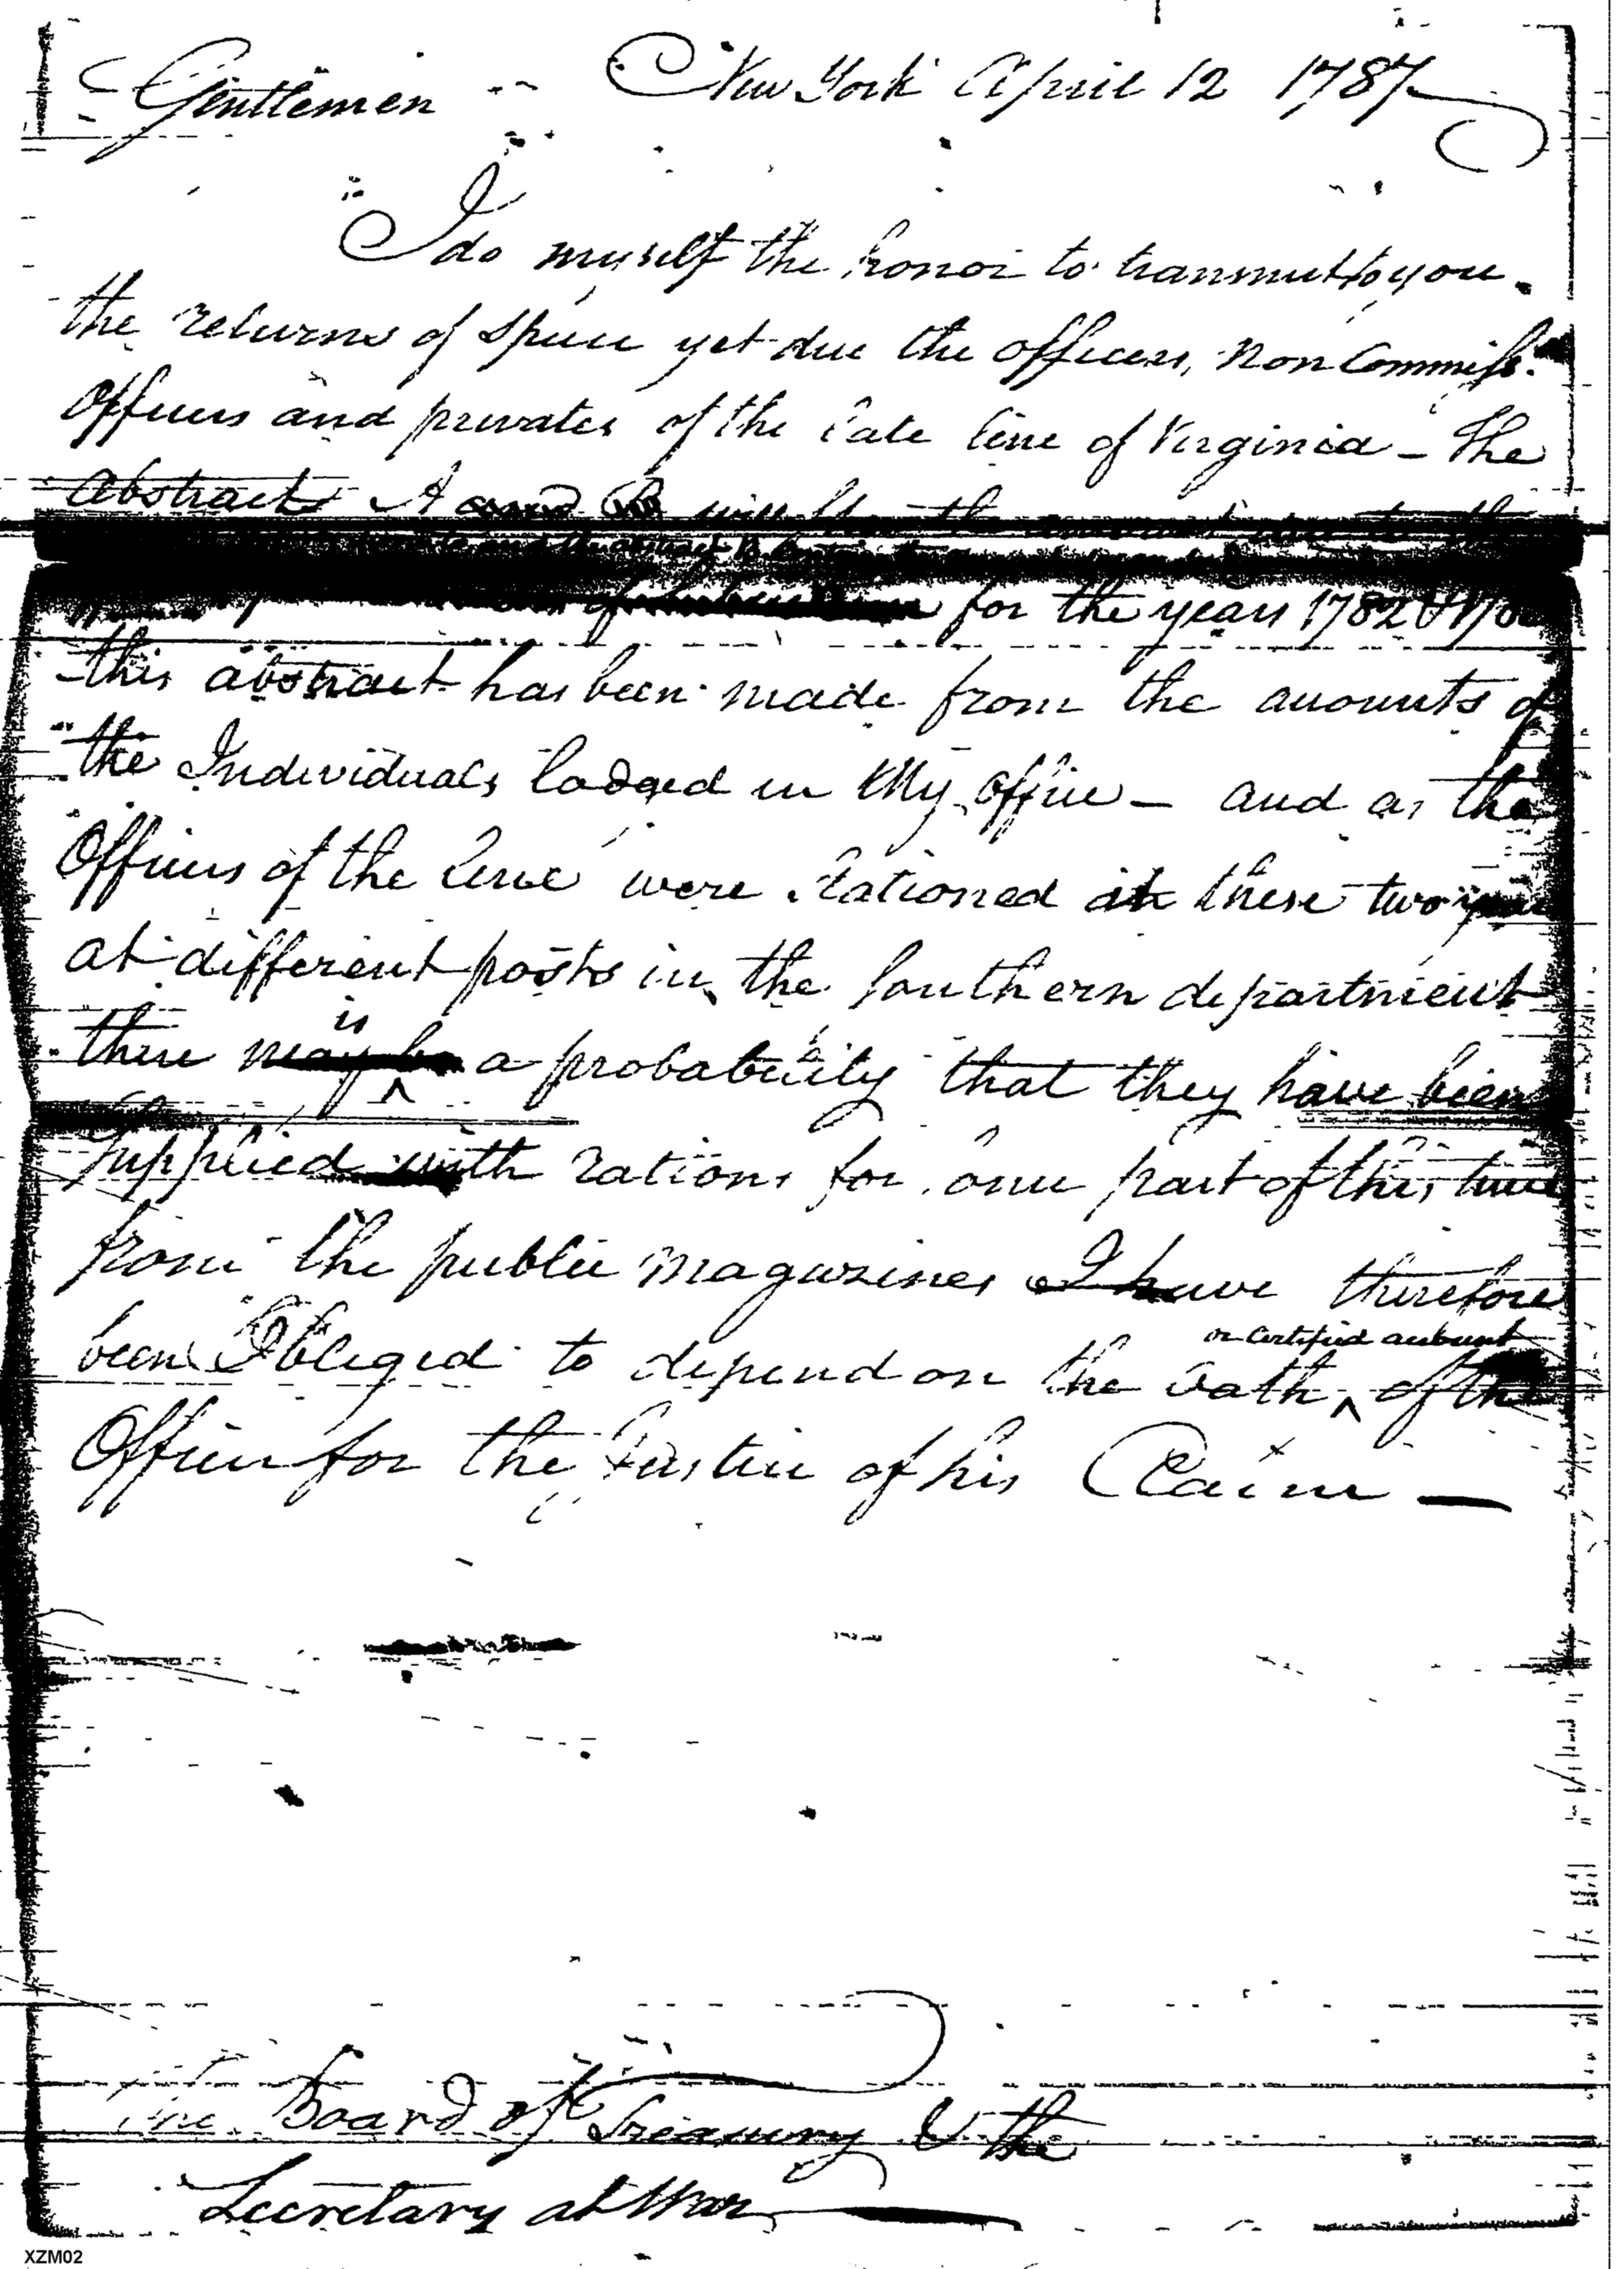 Gentlemen New York April 12 1787
I do myself the honor to transmit to you
the returns of Specie yet due the officers, non Commiss.
Officers and privates of the late line of Virginia - The
Abstracts A and B will the
for the years 1782
this abstract has been made from the accounts of
the Individuals lodged in My office - and as the
Officers of the line were stationed these two
at different posts in the Southern department
there is a probability that they have been
supplied with rations for part of this time
from the public magazines I have therefore
been Obleged to depend on the oath or Certified account of the
Officer for the Justice of his Claim -
The Board of Treasury & the
Secretary at War
XZM02